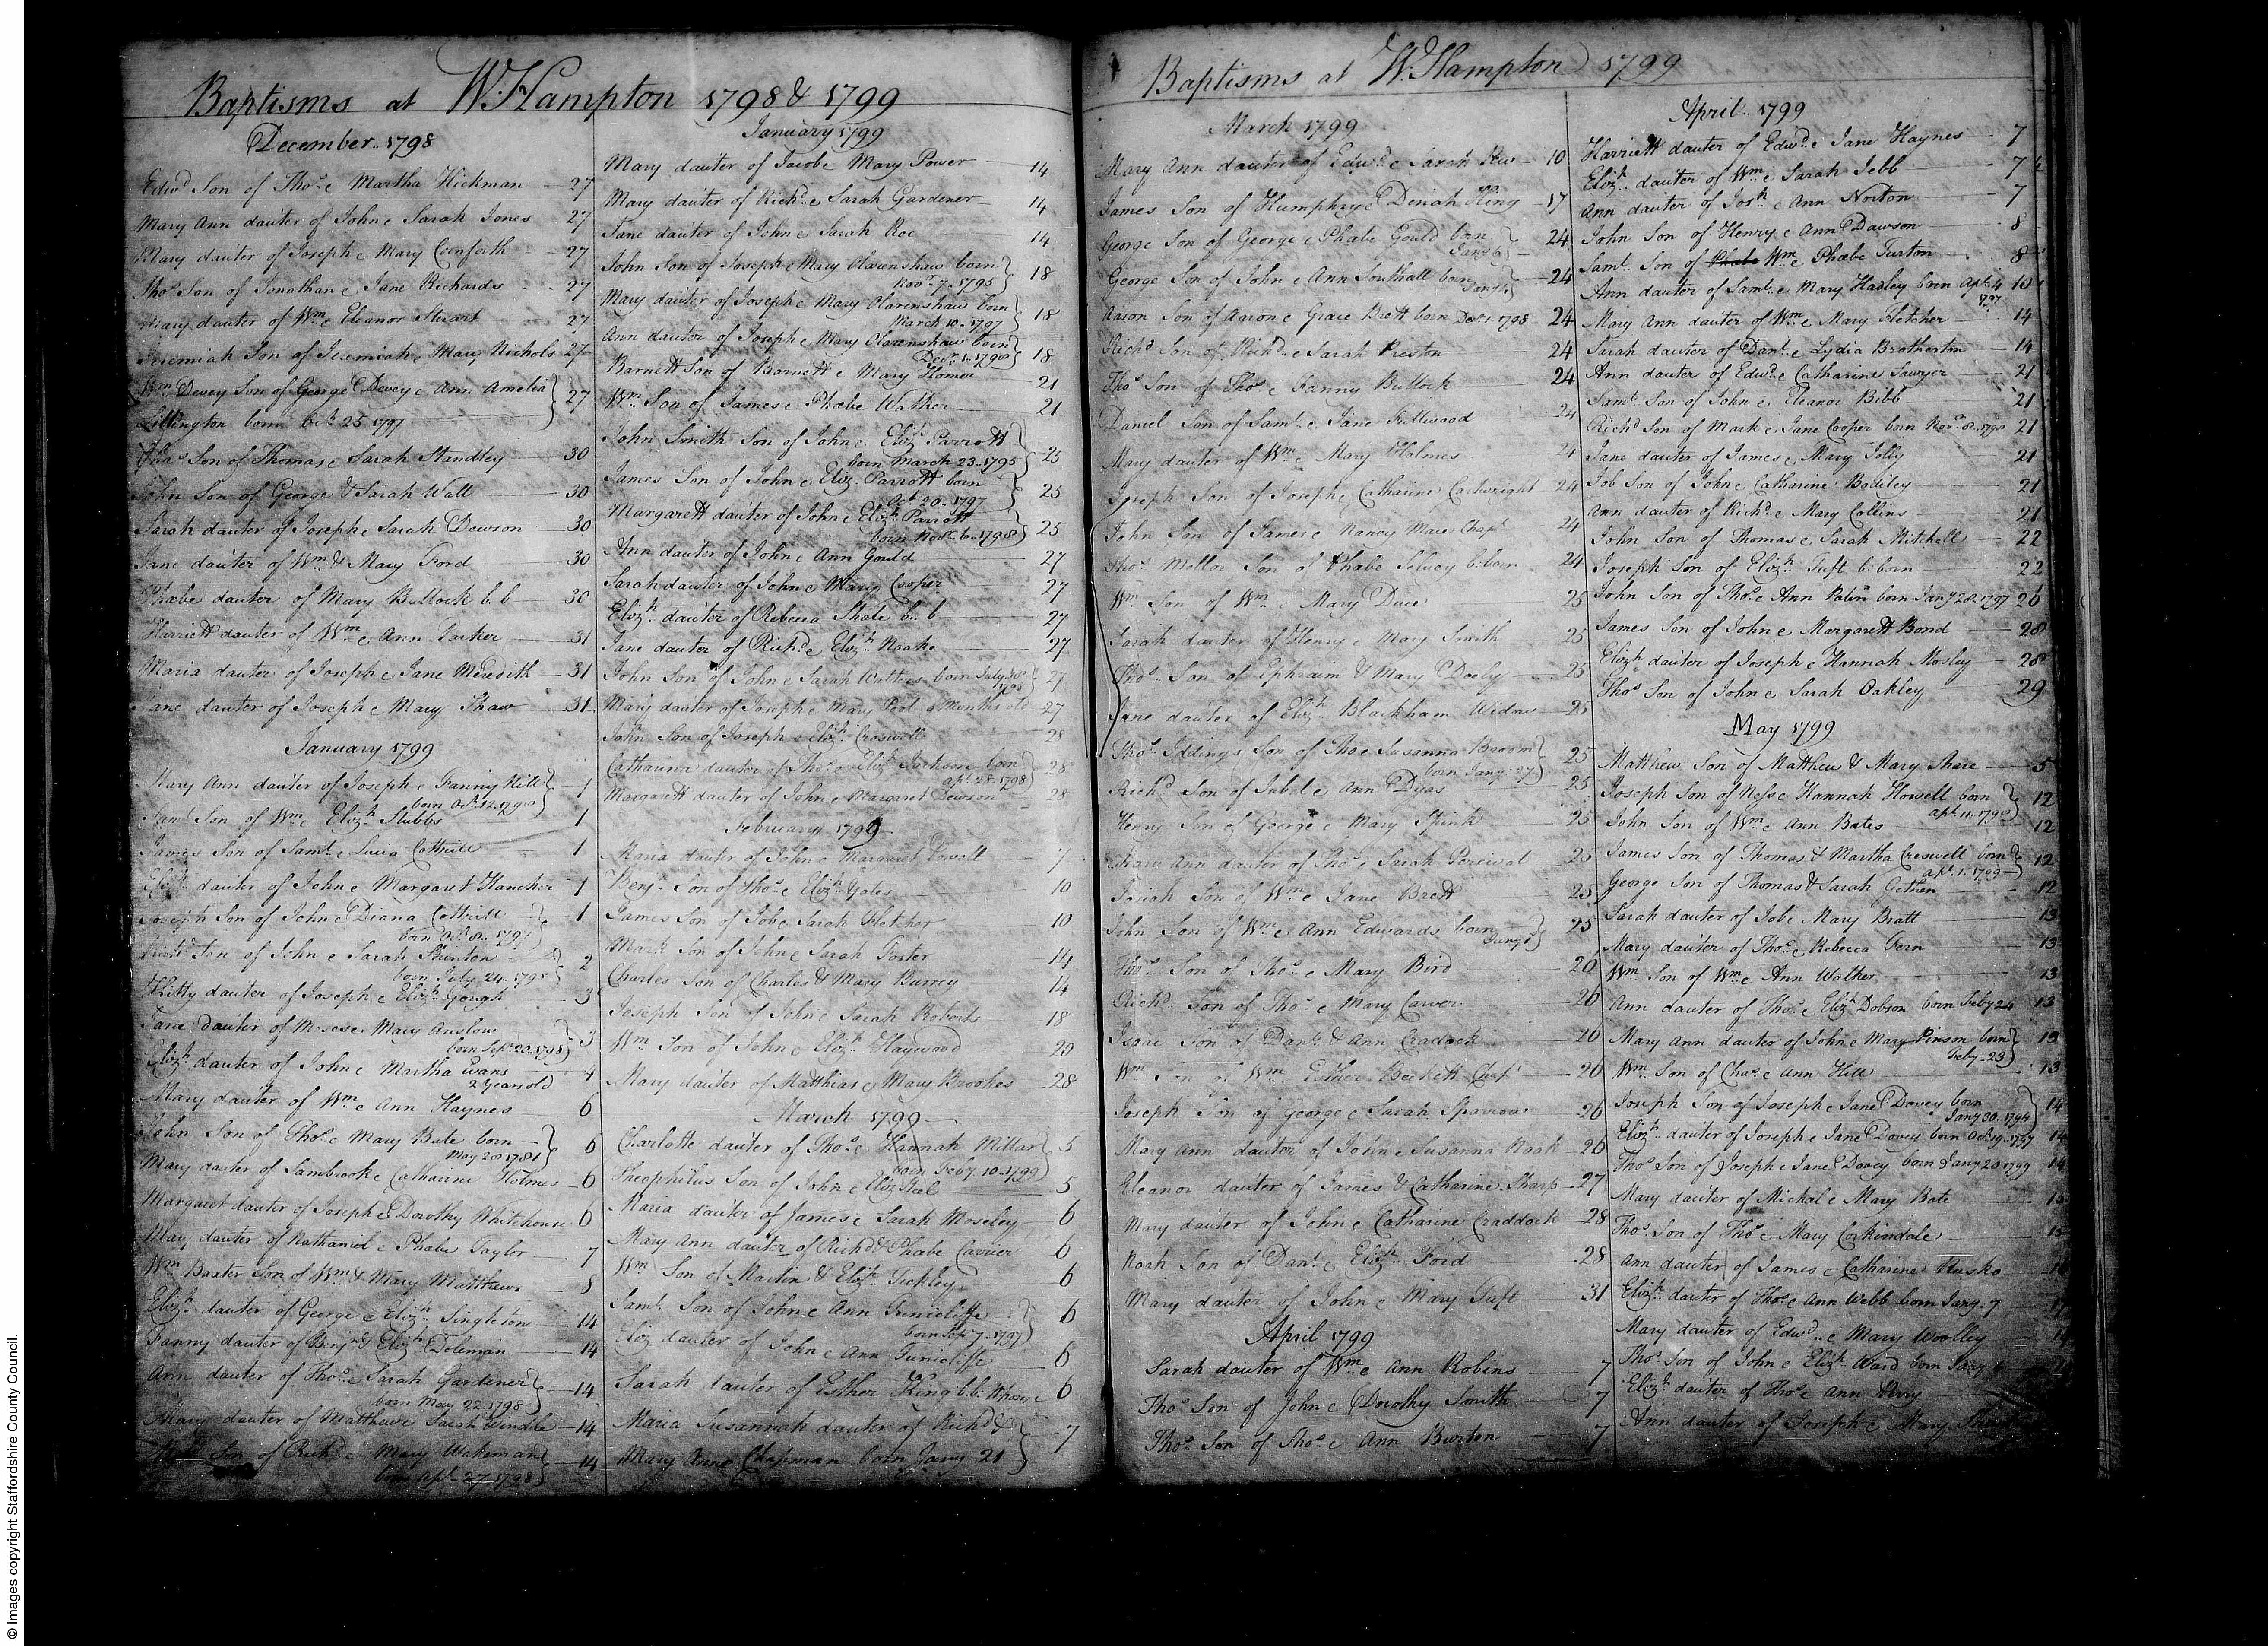 Baptisms at W.Hampton 1798 & 1799
December.. 1798
Edwd Son of Thos. e Martha Hickman — 27
Mary Ann dauter of John e Sarah Jones 27
Mary dauter of Joseph e Mary 27
Thos Son of Jonathan e Jane Richards 27
Mary dauter of Wm e Eleanor Stuart 27
Jeremiah Son of Jeremiah e Mary Nichols 27
Wm Devey Son of George Devey e Ann Amelia } 27
Lillington born Oct. 25 1797
Son of Thomas e Sarah Standley — 30
John Son of George & Sarah Wall — 30
Sarah dauter of Joseph e Sarah Dewson 30
Jane dauter of Wm & Mary Ford 30
Phœbe dauter of Mary Bullock b. b — 30
Harriett dauter of Wm e Ann — 31
Maria dauter of Joseph e Jane Meredith — 31
Jane dauter of Joseph e Mary Shaw — 31
January 1799
Mary Ann dauter of Joseph e Fanny Hill } 1
born Oct. 12. 1798
Saml Son of Wm e Elizh Stubbs 1
James Son of Saml. e Lucia Cottrill 1
Elizh dauter of John e Margaret Hancher 1
Joseph Son of John e Diana Cottrill } 1
born 1797
Son of John e Sarah } 2
born 24. 1798
Kitty dauter of Joseph e Elizh. Gough — 3
Jane dauter of Moses e Mary Anslow } 3
born Sept. 20. 1798
Elizh. dauter of John e Martha Evans — 4
2 Years old
Mary dauter of Wm e Ann Haynes — 6
John Son of Thos. e Mary Bate born } 6
May 20 1781
Mary dauter of Sambrook e Catharine Holmes — 6
Margaret dauter of Joseph e Dorothy Whitehouse 6
Mary dauter of Nathaniel e Phœbe Taylor — 7
Wm Baxter Son of Wm & Mary Matthews 8
Elizh. dauter of George e Elizh. Singleton — 14
Fanny dauter of Benjn & Elizh. Doleman — 14
Ann dauter of Thos. e Sarah Gardener } 14
born May 22 1798
Mary dauter of Matthew e Sarah Windle — 14
Son of Richd. e Mary Wakeman } 14
born Sept. 27. 1798
January 1799
Mary dauter of Jacob e Mary Power — 14
Mary dauter of Richd. e Sarah Gardener — 14
Jane dauter of John e Sarah Roe — 14
John Son of Joseph e Mary Clarenshaw born } 18
Novr. 7. 1795
Mary dauter of Joseph e Mary Clarenshaw born } 18
March 10. 1797
Ann dauter of Joseph e Mary Clarenshaw born } 18
Decr. 1. 1798
Barnett Son of Barnett e Mary Homer — 21
Wm Son of James e Phœbe Walker — 21
John Smith Son of John e Elizh. Parrott } 25
born March 23. 1795
James Son of John e Eliz. Parrott born } 25
Oct 20. 1797
Margarett dauter of John e Elizh Parrott } 25
born Novr. 6. 1798
Ann dauter of John e Ann Gould — 27
Sarah dauter of John e Mary Cooper — 27
Elizh. dauter of Rebecca Shale b. b — 27
Jane dauter of Richd. e Elizh. Noake — 27
John Son of John e Sarah Watters born July } 27
Mary dauter of Joseph e Mary Months old — 27
John Son of Joseph e Elizh. Creswell — 28
Catharina dauter of Thos. e Elizh. Jackson born } 28
apl. 28. 1798
Margarett dauter of John e Margaret Dewson — 28
February 1799
Maria dauter of John e Margaret — 7
Benjn. Son of Thos. e Elizh Gates — 10
James Son of Job e Sarah Fletcher 10
Mark Son of John e Sarah Foster 14
Charles Son of Charles & Mary Burrey 14
Joseph Son of John e Sarah Roberts 18
Wm Son of John e Elizh. Haywood 20
Mary dauter of Matthias e Mary Brookes — 28
March 1799
Charlotte dauter of Thos. e Hannah Millar } 5
born Feby. 10. 1799
Theophilus Son of John e Eliz Steel — 5
Maria dauter of James e Sarah Moseley — 6
Mary Ann dauter of Richd & Phœbe Carrier 6
Wm Son of Martin & Elizh. Tickley 6
Saml. Son of John e Ann Tunicliffe } 6
born Sep. 7. 1797
Eliz dauter of John e Ann Tunicliffe — 6
Sarah dauter of Esther King b.b. 6
Maria Susannah dauter of Richd. & } 7
Mary Anne Chapman born Jany 21
Baptisms at W.Hampton 1799
March 1799
Mary Ann dauter of Edwd. e Sarah — 10
James Son of Humphry e Dinah King — 17
George Son of George e Phœbe Gould born } 24
Jany 6
George Son of John e Ann Southall born } 24
Aaron Son of Aaron e Grace Brett born Decr. 1. 1798 — 24
Richd Son of Richd. e Sarah Preston 24
Thos Son of Thos e Fanny Bullock — 24
Daniel Son of Saml. e Jane 24
Mary dauter of Wm e Mary Holmes 24
Joseph Son of Joseph e Catharine Cartwright 24
John Son of James e Nancy Mare Chapl 24
Thos. Mellor Son of Phœbe b. born 24
Wm Son of Wm e Mary Duce 25
Sarah dauter of Henry e Mary Smith 25
Thos. Son of Ephraim & Mary Dooby — 25
Jane dauter of Elizh. Blackham Widow — 25
Thos. Iddings Son of Thos e Susanna Broom } 25
born Jany. 27
Richd Son of Jubal e Ann Dyas 25
Henry Son of George e Mary Spink 25
Mary Ann dauter of Thos. e Sarah Percival 25
Son of Wm e Jane Brett 25
John Son of Wm e Ann Edwards born } 25
Jany 1
Thos. Son of Thos. e Mary Bird 26
Richd. Son of Thos. e Mary Carver 26
Isaac Son of Danl. & Ann Cradock — 26
Wm Son of Wm Esther Beckett Chapl — 26
Joseph Son of George e Sarah Sparrow — 26
Mary Ann dauter of John e Susanna Noak — 26
Eleanor dauter of James & Catharine Sharp — 27
Mary dauter of John e Catharine Craddock — 28
Noah Son of Danl. e Elizh. Ford — 28
Mary dauter of John e Mary Tuft 31
April 1799
Sarah dauter of Wm e Ann Robins — 7
Thos Son of John e Dorothy Smith 7
Thos. Son of Thos. e Ann Burton 7
April.. 1799
Harriett dauter of Edwd. e Jane Haynes — 7
Elizh. dauter of Wm e Sarah Jebb 7
Ann dauter of Josh e Ann Norton 7
John Son of Henry e Ann Dawson 8
Saml. Son of Phœbe Wm e Phœbe Turton 8
Ann dauter of Saml. e Mary Hadley born Apl. 4 10
1797
Mary Ann dauter of Wm e Mary Fletcher 14
Sarah dauter of Danl. e Lydia Brotherton — 14
Ann dauter of Edwd. e Catharine Sawyer — 21
Saml Son of John e Eleanor Bibb 21
Richd Son of Mark e Jane Cooper born Novr. 8. 1798 21
Jane dauter of James e Mary Jolly 21
Job Son of John e Catharine Bodiley 21
Ann dauter of Richd. e Mary Collins 21
John Son of Thomas e Sarah Mitchell — 22
Joseph Son of Elizh. Tuft b. born 22
John Son of Thos. e Ann born Jany 28. 1797 26
James Son of John e Margarett Bond 28
Elizh dauter of Joseph e Hannah Mosley — 28
Thos Son of John e Sarah Oakley 29
May 1799
Matthew Son of Matthew & Mary Share — 5
Joseph Son of Ness e Hannah Howell born } 12
apl. 11. 1798
John Son of Wm e Ann Bates 12
James Son of Thomas & Martha Creswell born } 12
apl. 1. 1799
George Son of Thomas & Sarah Gethen — 12
Sarah dauter of Job e Mary Bratt 13
Mary dauter of Thos. e Rebecca Fern 13
Wm Son of Wm e Ann Walker 13
Ann dauter of Thos. e Elizh Dobson born Feby 24 13
Mary Ann dauter of John e Mary Pinson born } 13
Feby. 23
Wm Son of Chas. e Ann Hill 13
Joseph Son of Joseph e Jane Dovey born } 14
Jany 30. 1794
Elizh. dauter of Joseph e Jane Dovey born Oct. 19. 1797 14
Thos Son of Joseph e Jane Dovey born Jany 20 1799 14
Mary dauter of Michal e Mary Bate 15
Thos. Son of Thos e Mary Corkindale 15
Ann dauter of James e Catharine
Elizh. dauter of Thos. e Ann Webb born Jany. 7
Mary dauter of Edwd. e Mary Woolley
Thos. Son of John e Elizh. Ward born Jany 6
Elizh dauter of Thos. e Ann Perry
Ann dauter of Joseph e Mary
© Images copyright Staffordshire County Council.